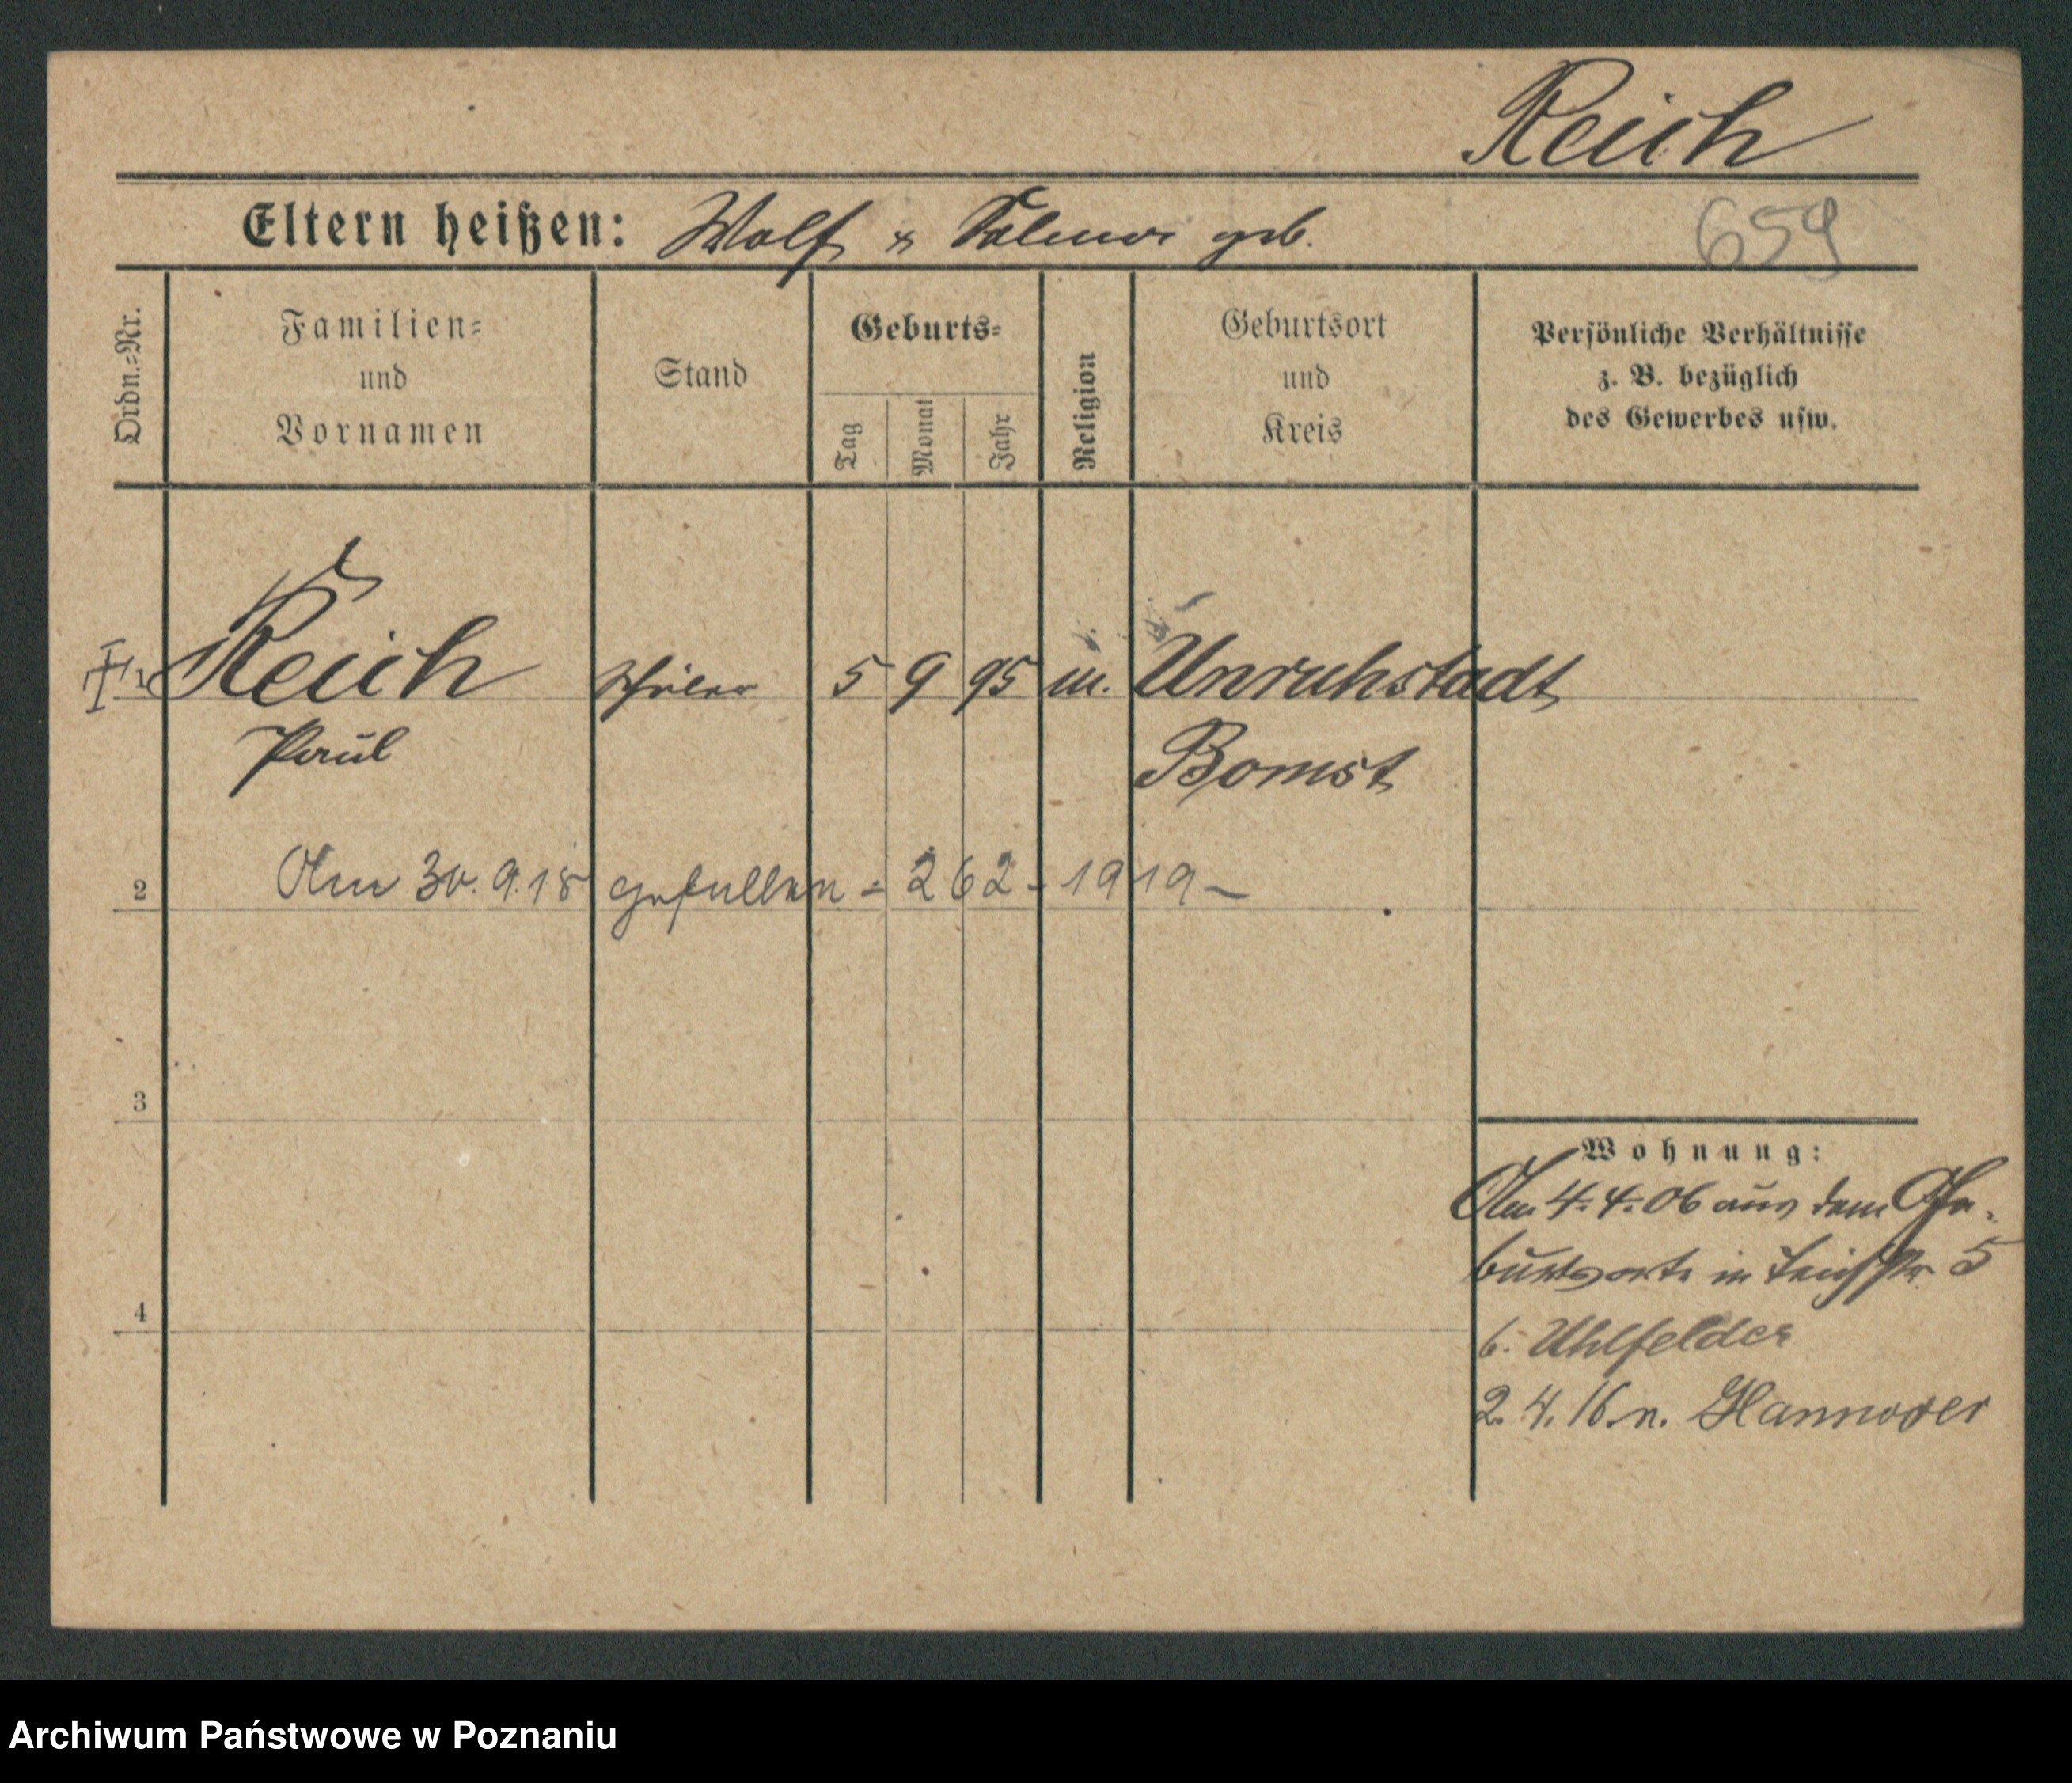 Reich
Eltern heißen: Wolf & geb.
659
Ordn.-Nr.
Familien-
und
Vornamen
Stand
Geburts-
Tag
Monat
Jahr
Religion
Geburtsort
und
Kreis
Persönliche Verhältnisse
z. B. bezüglich
des Gewerbes usw.
1 Reich Schüler 5 9 95 m. Unruhstadt
Paul Bomst
2 Am 30.9.18 gefallen = 262 - 1919 -
3
4
Wohnung:
Am 4.4.06 aus dem Ge-
burtsorte in 5
b. Uhlfelder
2. 4. 16. n. Hannover
Archiwum Państwowe w Poznaniu